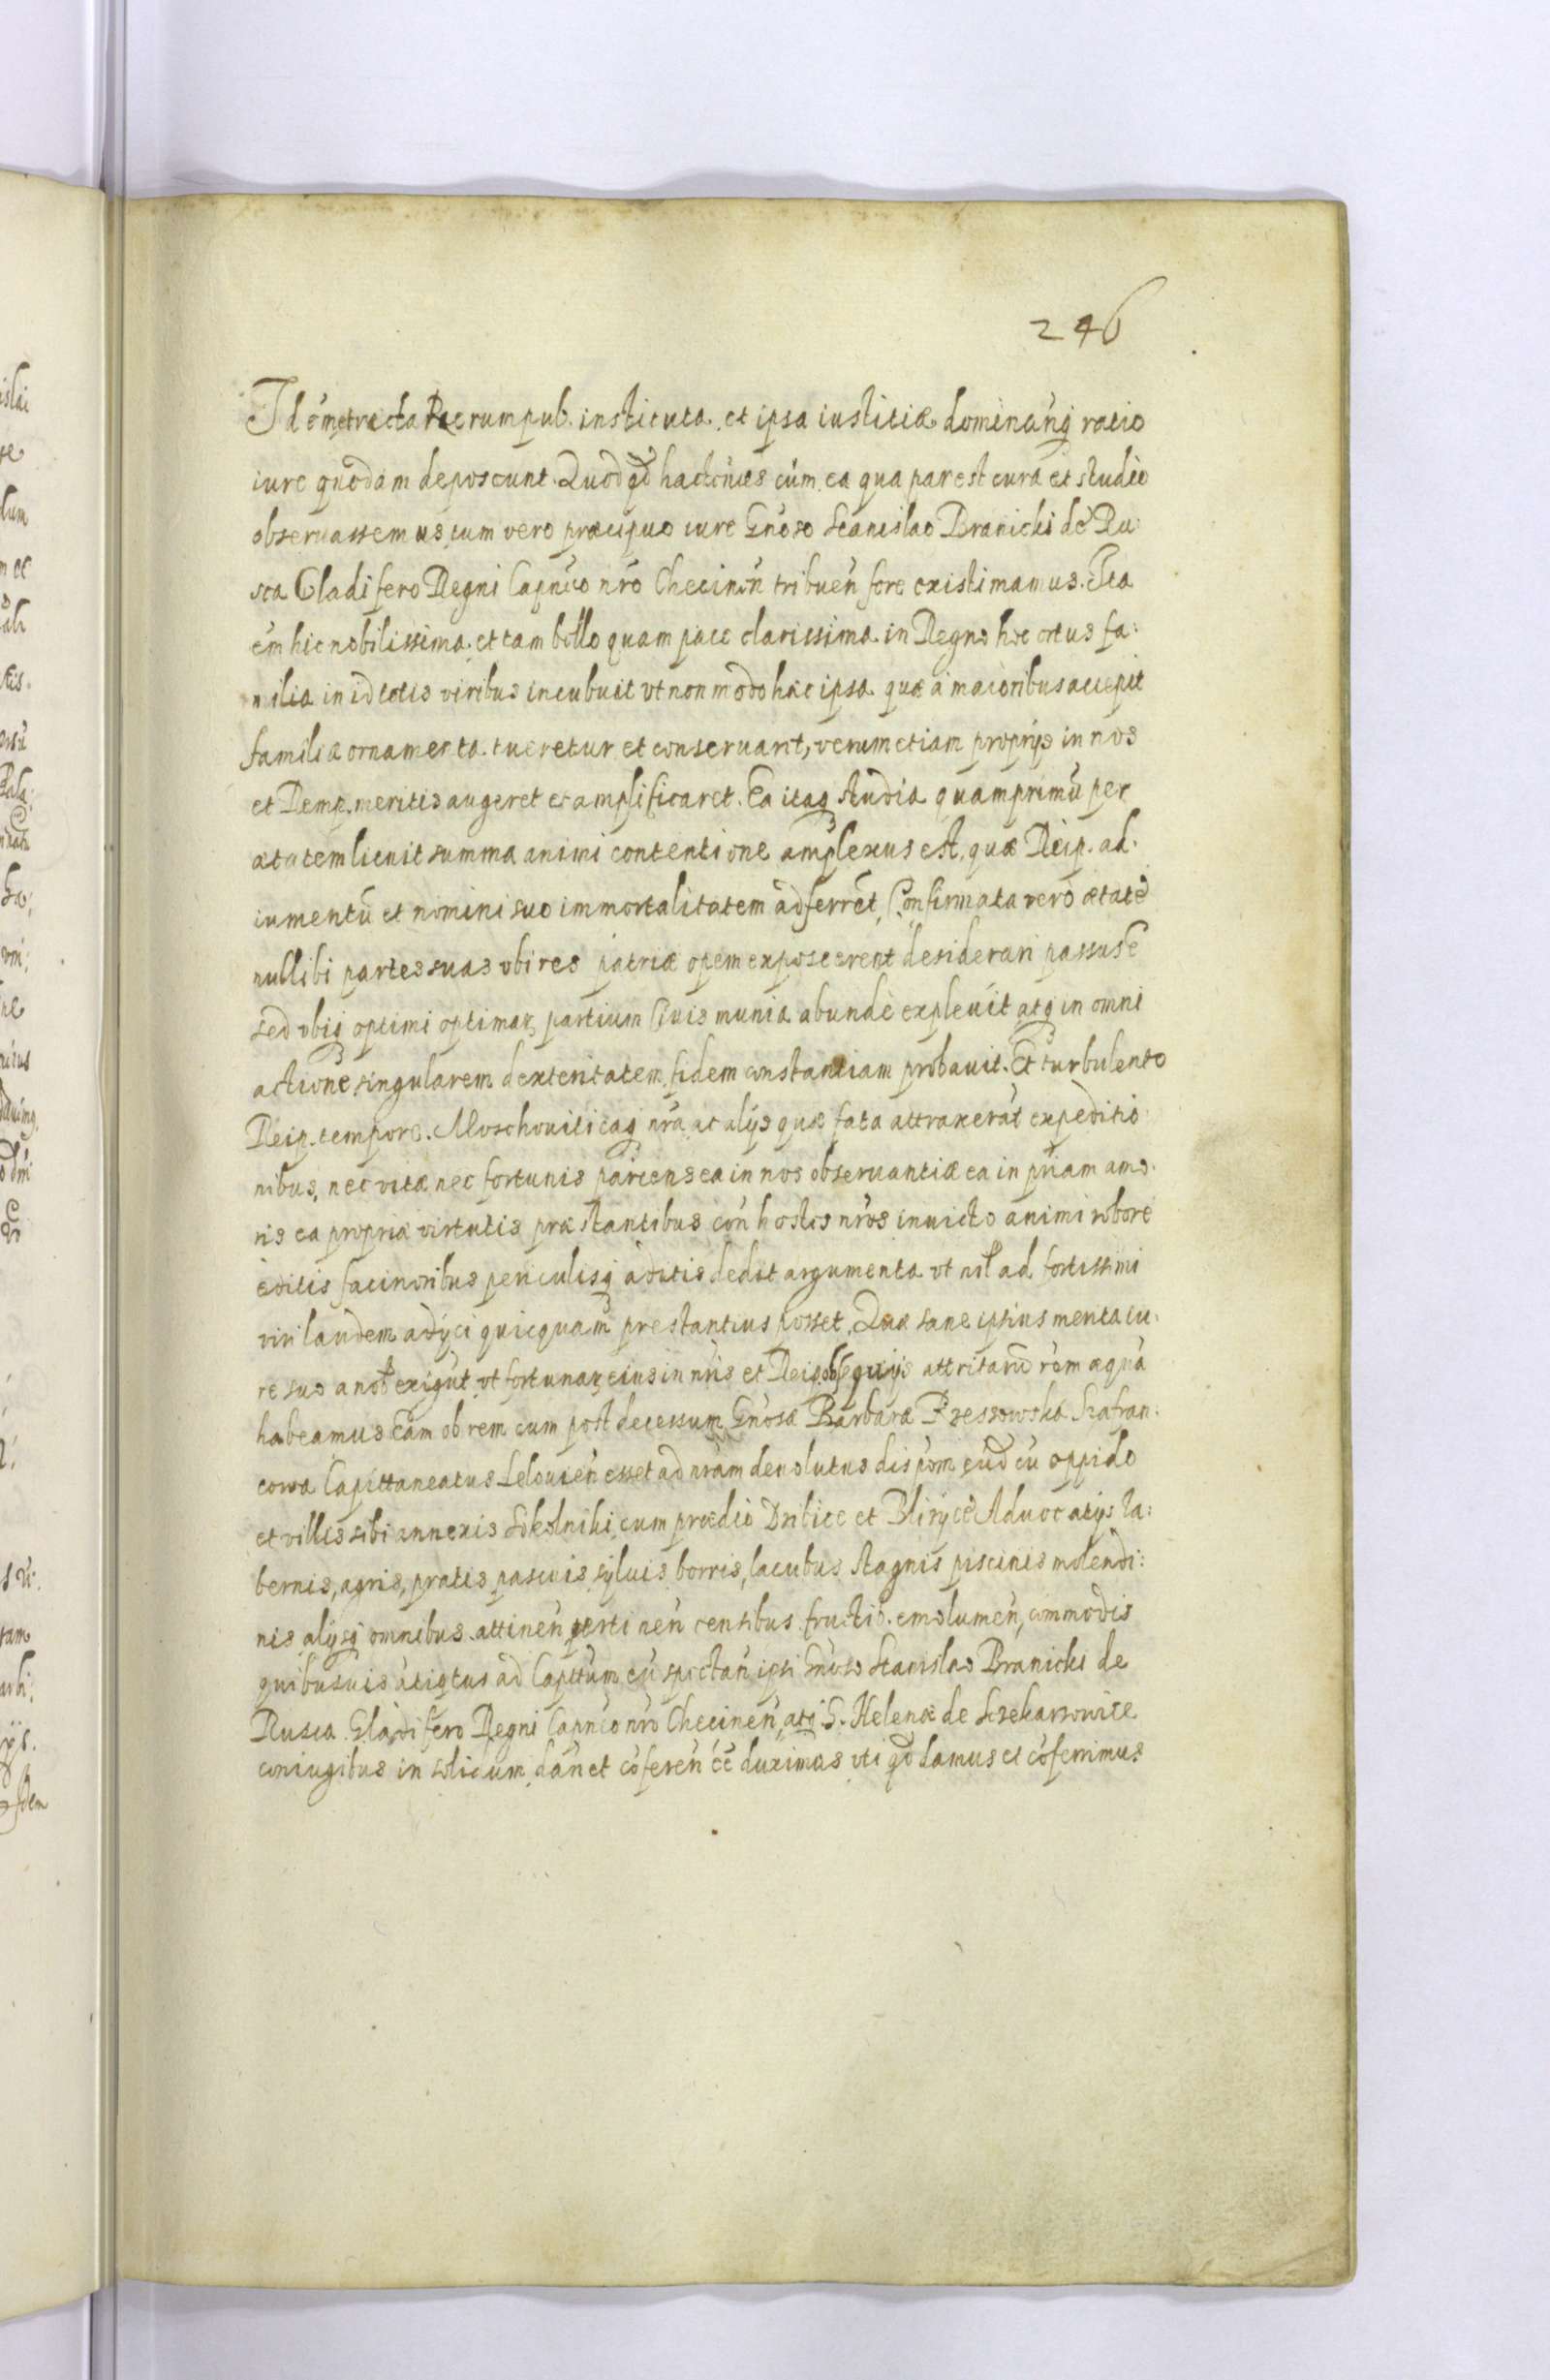 246
Id em̃ et recta Rerumpub. instituta et ipsa iustitiæ dominanq́ ratio
iure quodam deposcunt. Quod qd́ hactenus cùm ea qua par est cura et studio
obseruassemus, cum vero præcipuo iure Gnoso Stanislao Branicki de Ru:
sca Gladifero Regni Capneo nro Checinen̄ tribuen̄ fore existimamus. Ita
em̄ hic nobilissima et tam bello quam pace clarissima in Regno hoc ortus fa:
milia in id totis viribus incubuit vt non modo hæc ipsa quæ à maioribus accepit
familiæ ornamenta tueretur et conseruaret, verum etiam proprijs in nos
et Remp. meritis augeret et amplificaret. Ea itaq studia quamprimū per
ætatem licuit summa animi contentione amplexus est, quæ Reip. ad:
iumentū et nomini suo immortalitatem adferrēt, Confirmata vero ætate
nullibi partes suas vbi res patriæ opem exposcerent desiderari passus ē
sed vbiq optimi optimaꝝ partium Ciuis munia abundè expleuit atq in omni
actione singularem dexteritatem, fidem constantiam probauit. Et turbulento
Reip. tempore. Moschouiticaq nrā ac alijs quæ fata attraxerūt expeditio
nibus, nec vitæ nec fortunis parcens ea in nos obseruantiæ ea in pr̄iam amo:
ris ea propriæ virtutis præstantibus con̄ hostes nr̄os inuicto animi robore
editis facinoribus periculisq aditis dedit argumenta vt nil ad fortissimi
viri laudem adijci quicquam prestantius posset. Quæ sane ipsius merita iu:
re suo a nob exigūt vt fortunaꝝ eius in nr̄is et Reip. obsequijs attritarū rem æquā
habeamus Eam ob rem cum post decessum Gnosæ Barbaræ Rzeszowska Szafran:
cowa Capittaneatus Lelouien̄ esset ad nr̄am deuolutus dispom̄ eūd cū oppido
et villis sibi annexis Sokolniki cum prædio Dzibice et Bliżyce Aduocatijs Ta:
bernis, agris, pratis pascuis syluis borris, lacubus stagnis piscinis molendi:
nis alijsq omnibus attinen̄ pertinen̄ censibus fructib. emolumen̄, commodis
quibusuis antiqtus ad Capttūm eū spectan̄ ipsi Gnoso Stanislao Branicki de
Rusca Gladifero Regni Capneo nr̄o Checinen̄, atq G. Helenæ de
coniugibus in solidum dan̄ et cōferen̄ ēē duximus vti qd́ damus et cōferimus